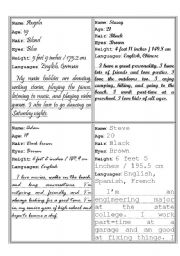 Name: Angela
Age: 19
Hair: Blond
Eyes: Blue
Height: 5 feet 9 inches / 175.2 cm
Languages: English, German
My main hobbies are dancing,
writing stories, playing the piano,
listening to music, and playing video
games. I also love to go dancing on
Saturday nights.
Name: Stacey
Age: 21
Hair: Black
Eyes: Brown
Languages: English, Chinese
I have a good personality. I have
lots of friends and love parties. I
love the outdoors too. I enjoy
camping, hiking, and going to the
beach. I work part-time at a
preschool. I love kids of all ages.
Name: Adam
Age: 18
Hair: Brown
Eyes: Brown
Languages: English
I love movies, walks on the beach
and long conversations. I'm
outgoing and friendly, and I'm
always looking for a good time. I am
in my senior year of high school and
Name: Steve
Age: 20
Hair: Black
Eyes: Brown
Height: 6 feet 5
inches / 195.5 cm
Languages: English,
Spanish, French
I'm an
engineering major
at the state
college. I work
part-time at a
garage and am good
at fixing things. I